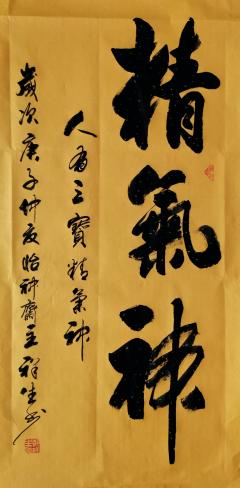 精氣神
人有三寶精氣神
歲次庚子仲夏怡神齋主祥生书